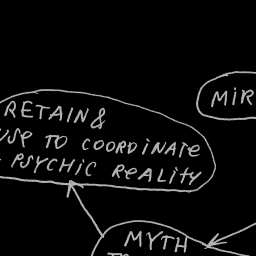 RETAIN &
USE TO COORDINATE
PSYCHIC REALITY
MIR
MYTH